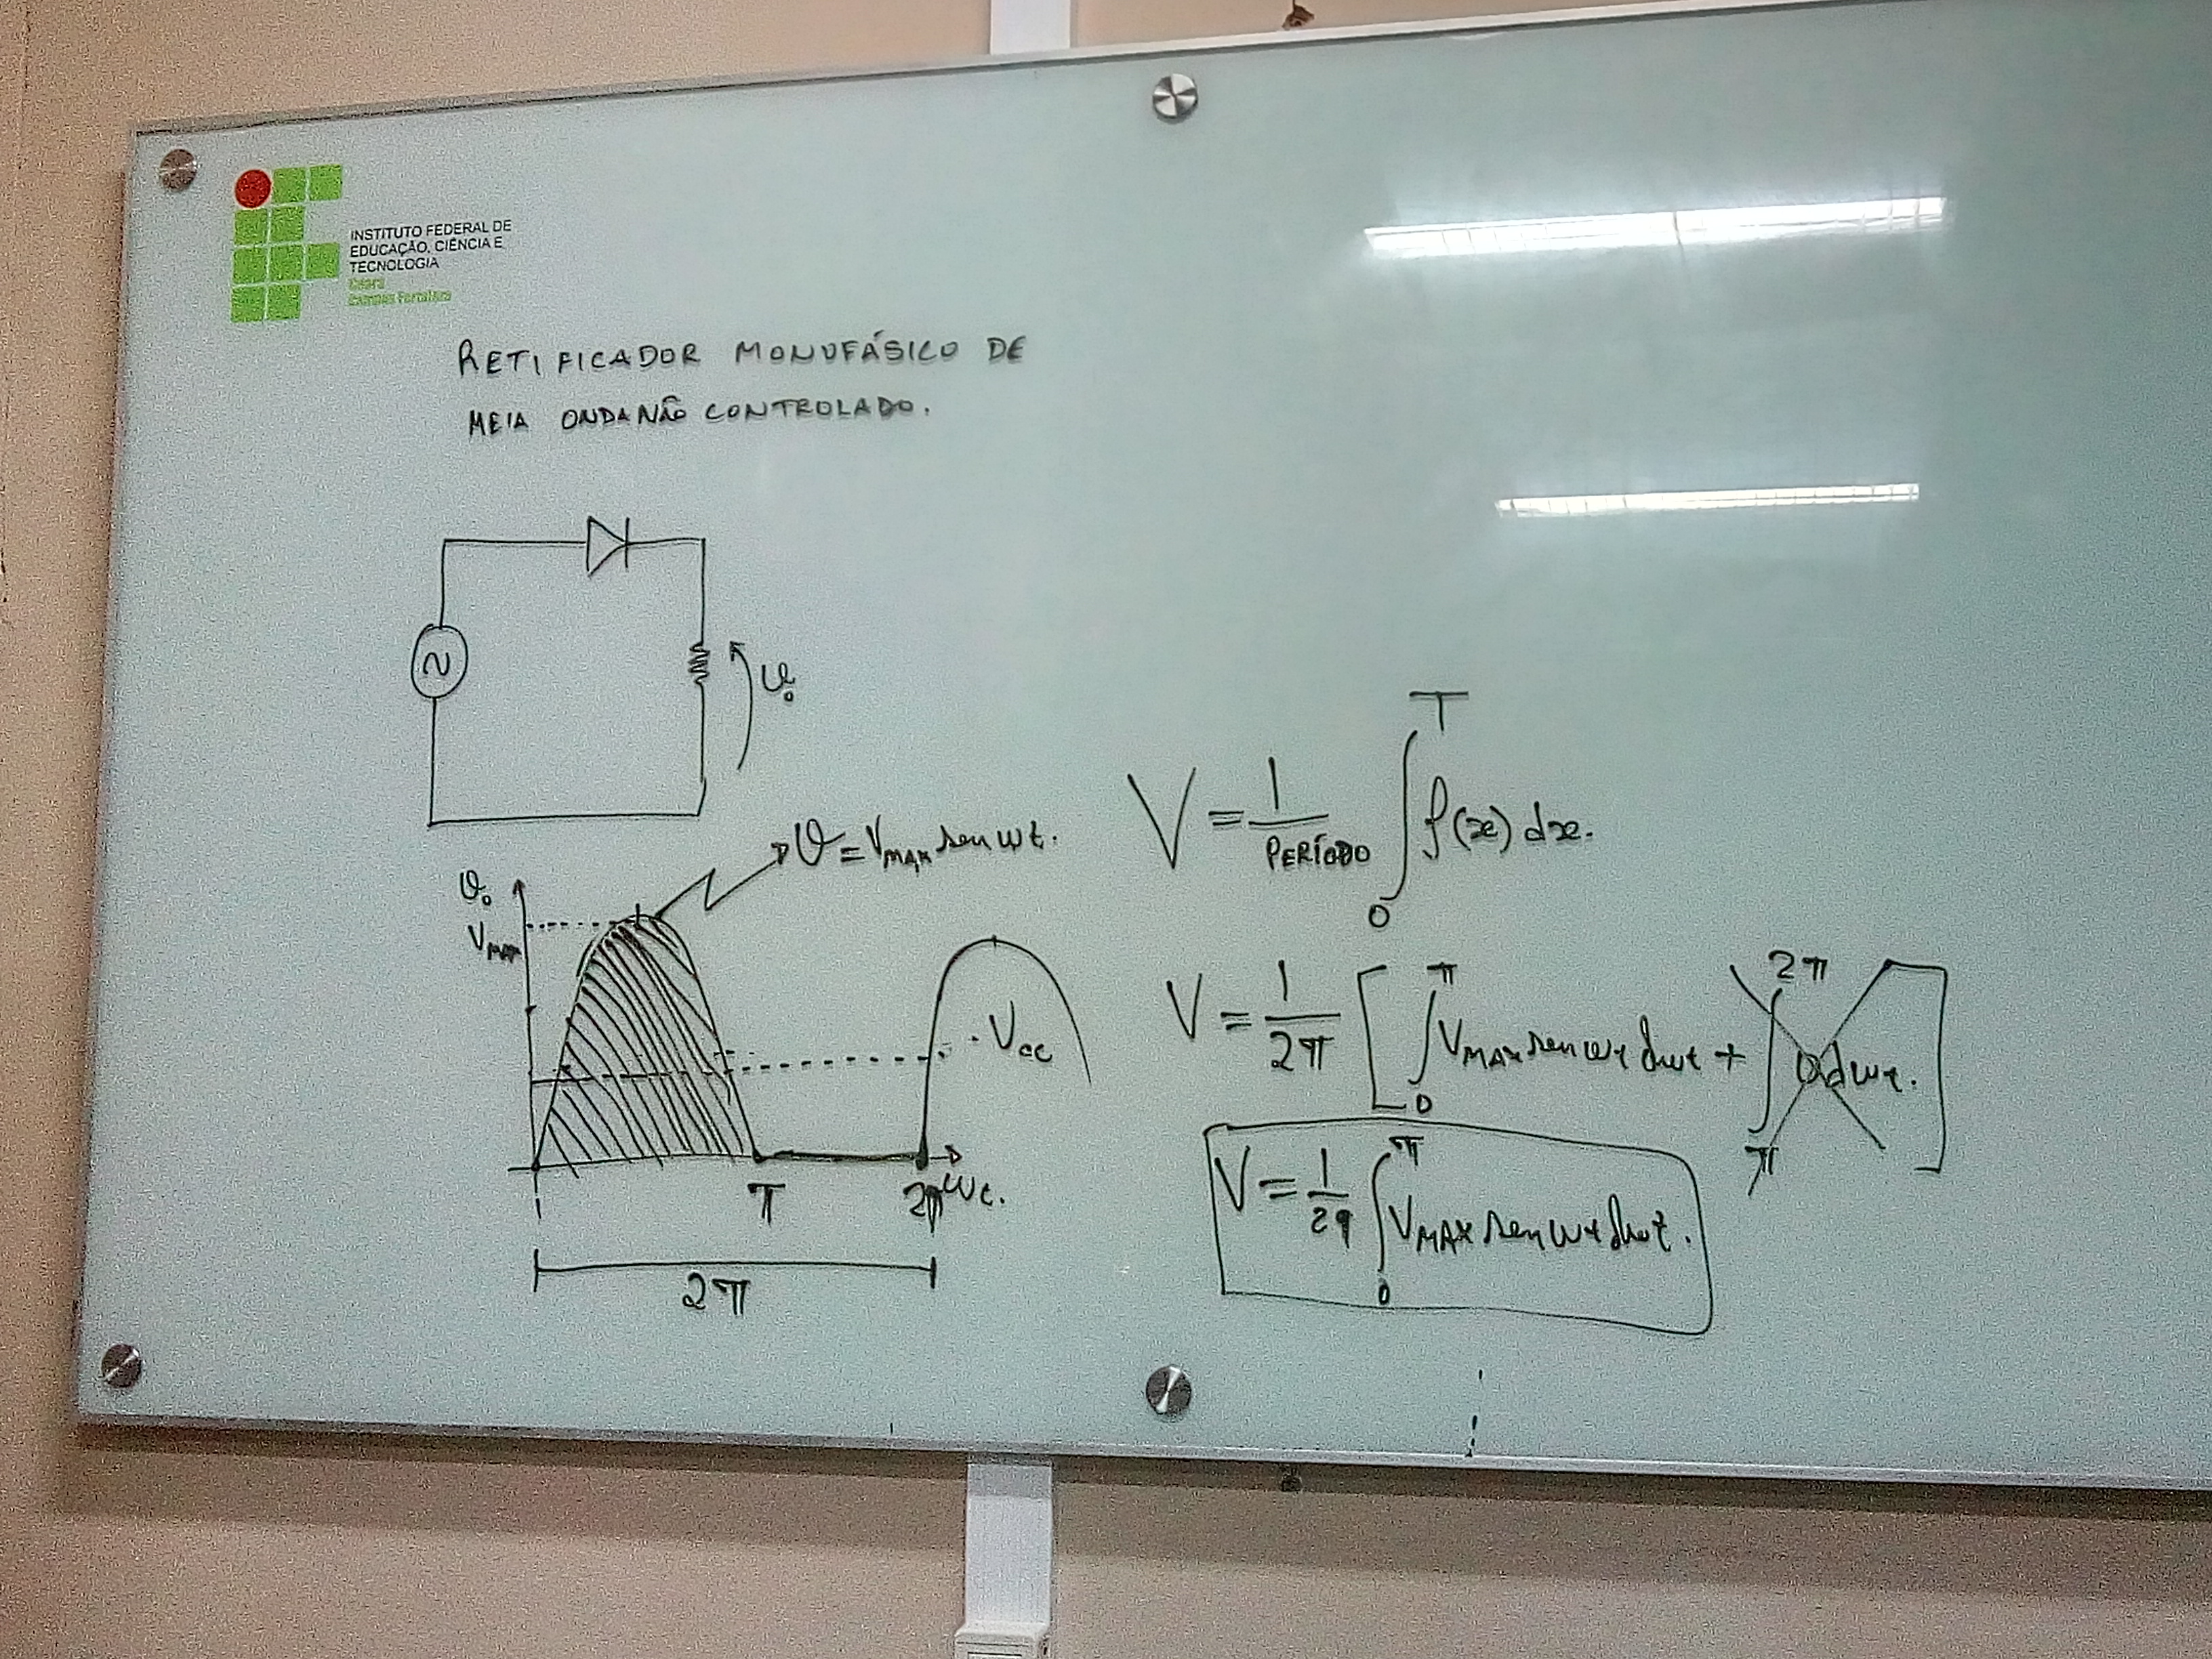 INSTITUTO FEDERAL DE
EDUCAÇÃO, CIÊNCIA E
TECNOLOGIA
Ceará
Campus Fortaleza
RETIFICADOR MONOFÁSICO DE
MEIA ONDA NÃO CONTROLADO.
~
v₀
v = V_MAX sen ωt.
v₀
V_MAX
V_CC
π
2π
ωt.
2π
V = 1/PERÍODO ∫₀^T f(x) dx.
V = 1/2π [ ∫₀^π V_MAX sen ωt dωt + ∫_π^2π 0 dωt. ]
V = 1/2π ∫₀^π V_MAX sen ωt dωt.